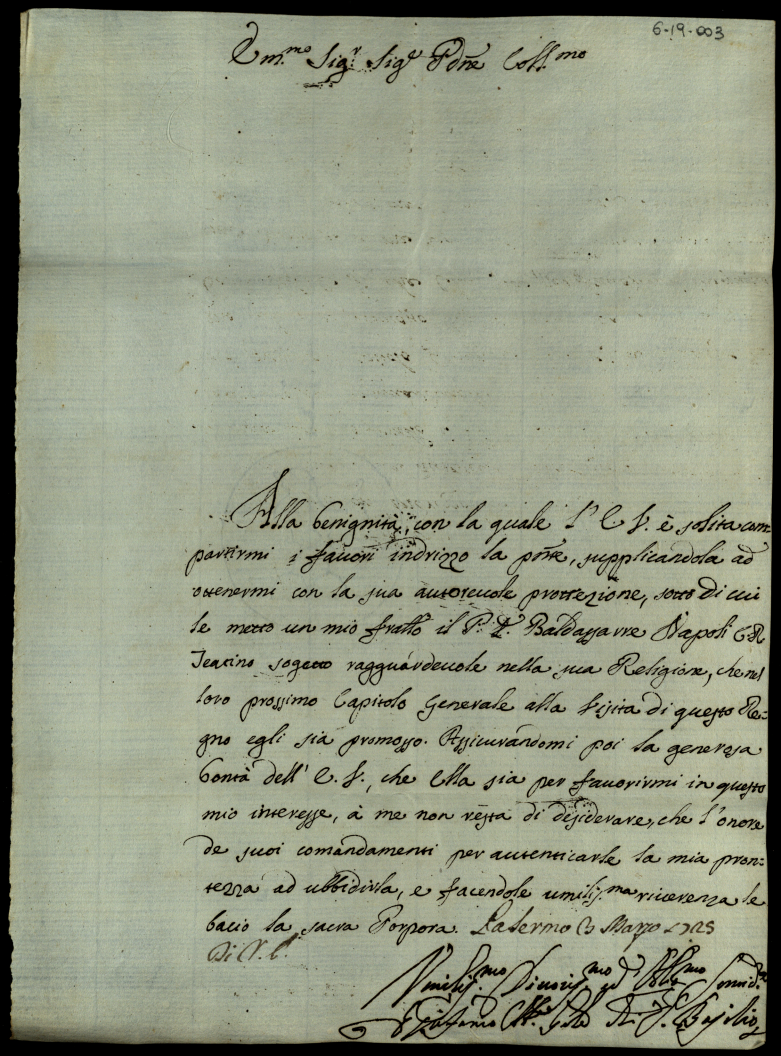 6-19-003
Em.mo Sig.r Sig.e Pdñe Coll.mo
Alla benignità, con la quale l' E. V. è solita com
partirmi i favori indrizzo la pñte, supplicandola ad
ottenermi con la sua autorevole protezzione, sotto di cui
le metto un mio fratello il P. D. Baldassarre Napoli C. R.
Teatino sogetto ragguardevole nella sua Religione, che nel
loro prossimo Capitolo Generale alla Visita di questo Re-
gno egli sia promosso. Assicurandomi poi la generosa
bontà dell' E. V., che Ella sia per favorirmi in questo
mio interesse, à me non resta di desiderare, che l'onore
de suoi comandamenti per autenticarle la mia pron-
tezza ad ubbidirla, e facendole umiliss.ma riverenza le
bacio la sacra Porpora. Palermo Marzo 1725
Di V. E.
Umiliss.mo Divotiss.mo ed Obl.mo